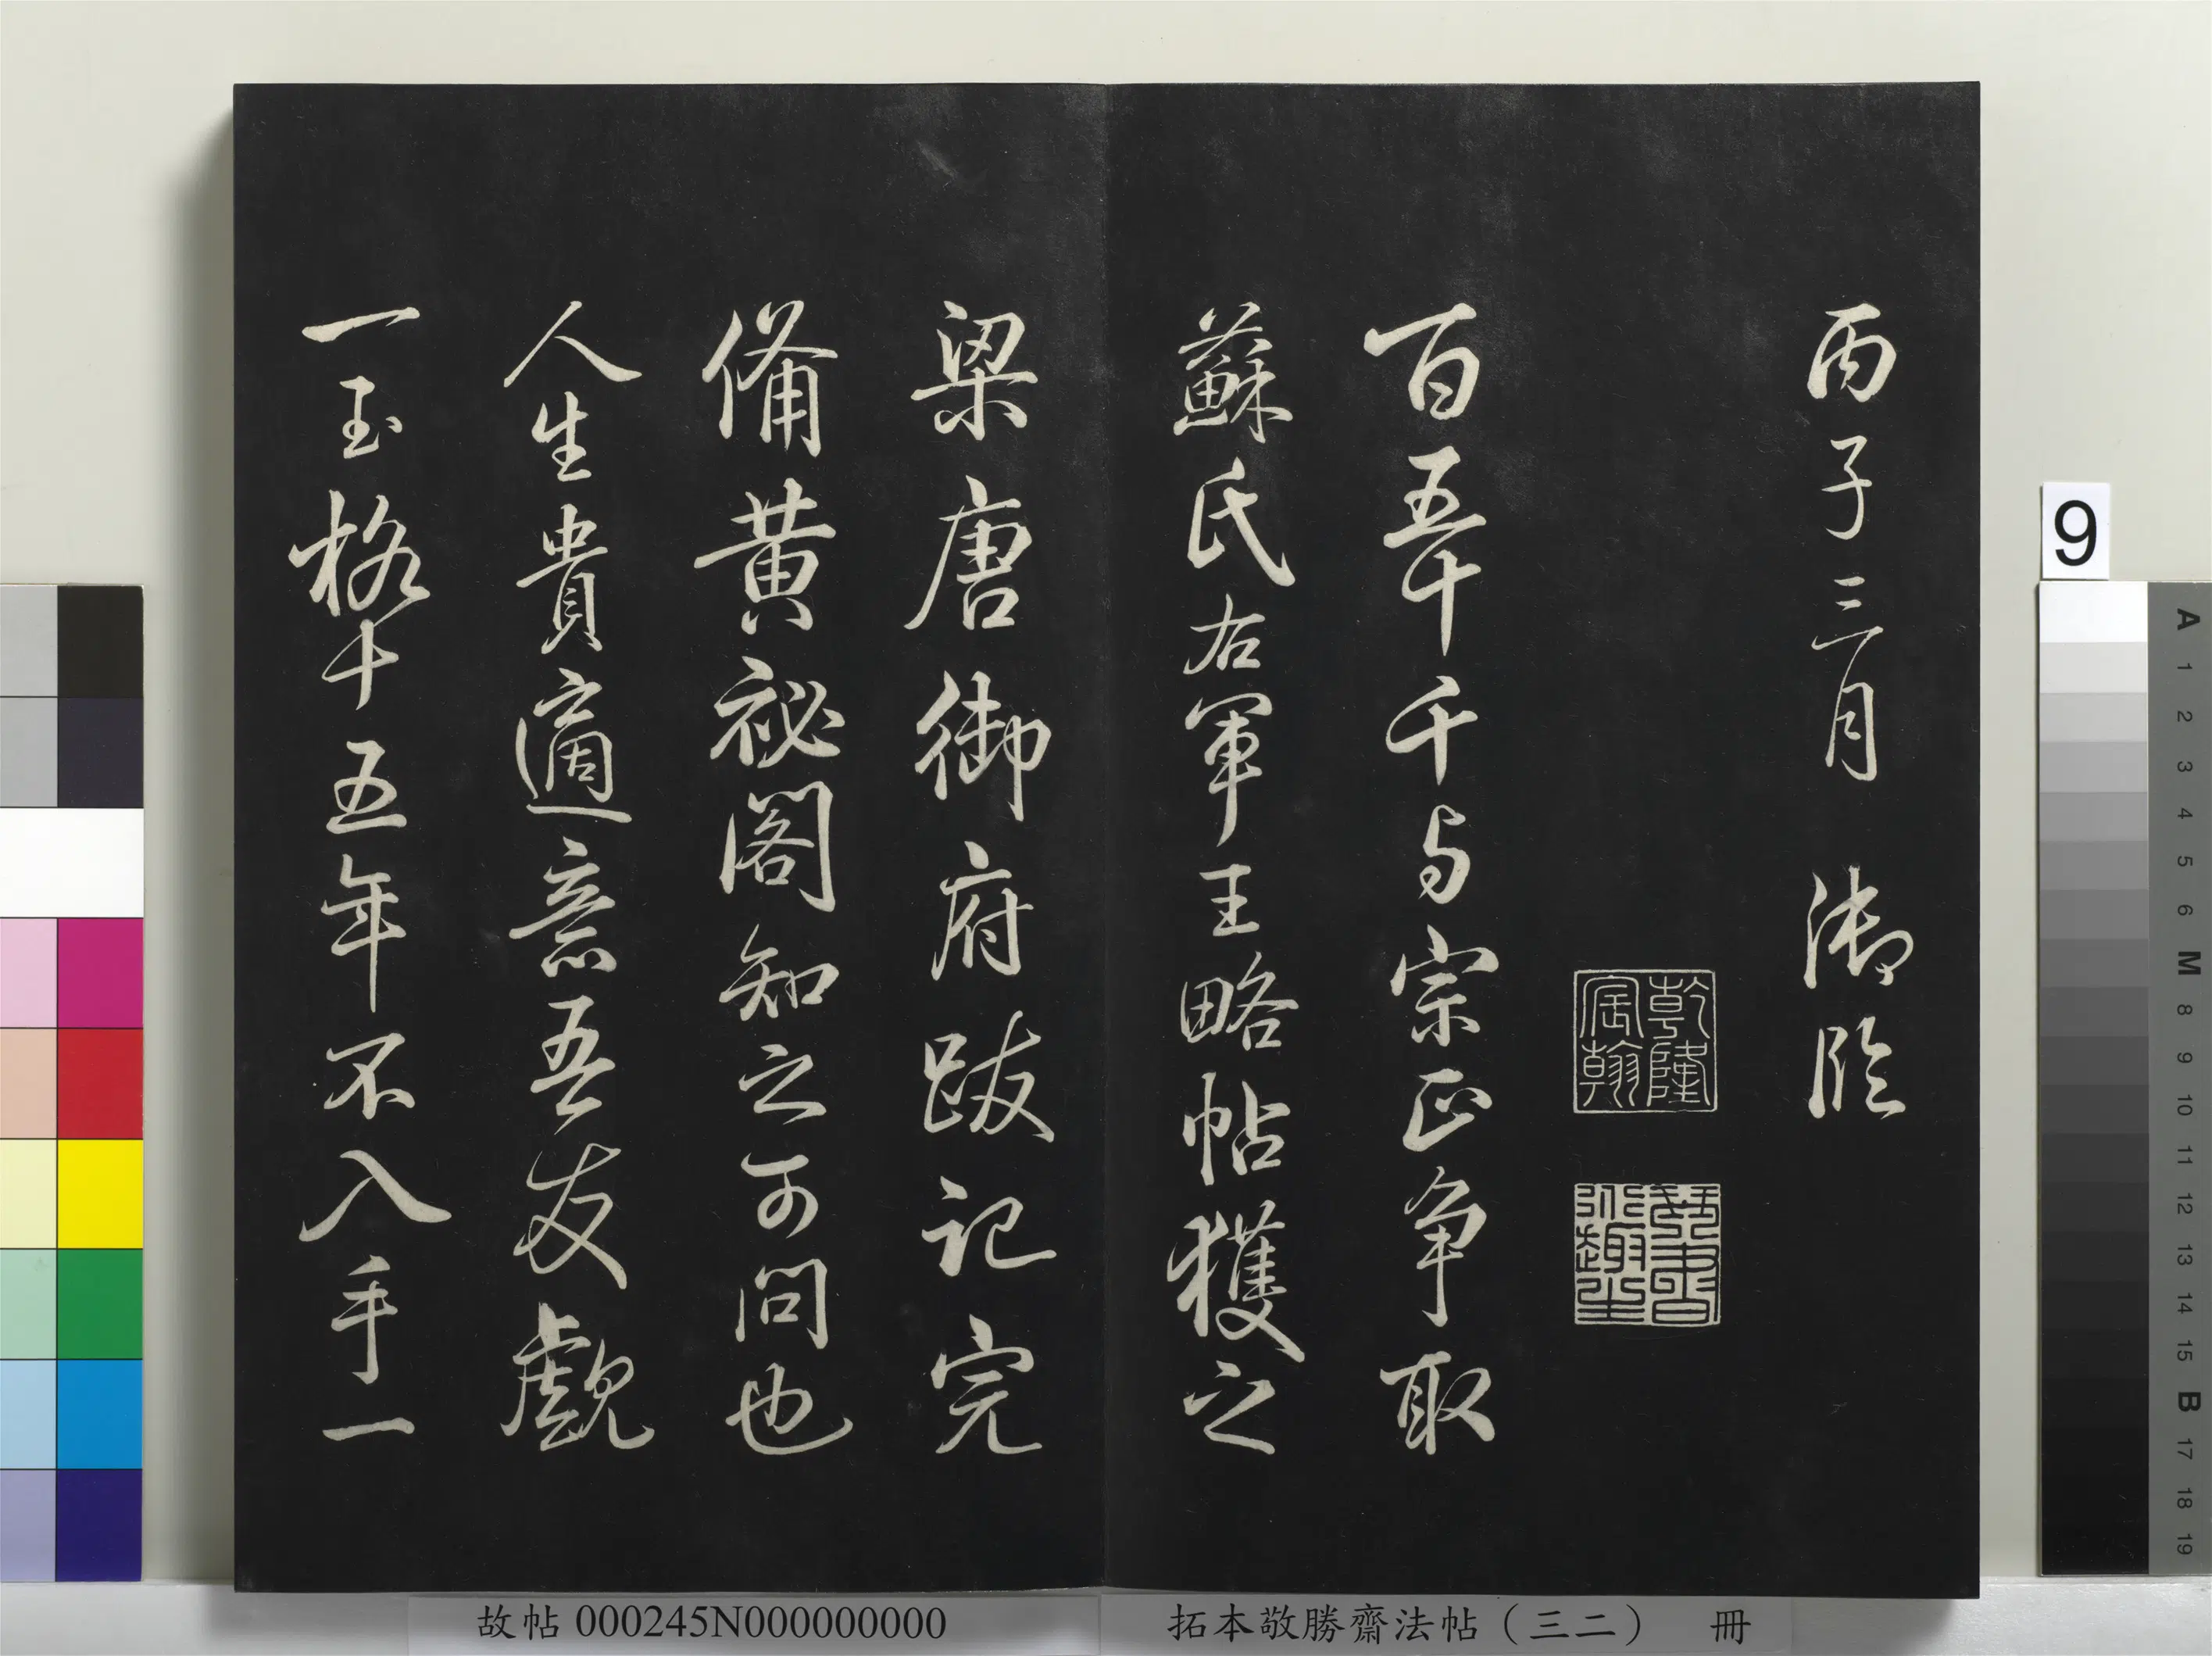 丙子三月 御臨
乾隆宸翰
琴書道趣生
百五十千与宗正争取
蘇氏右軍王略帖獲之
梁唐御府跋記完
備黄祕閣知之可問也
人生貴適意吾友覷
一玉格十五年不入手一
9
A 1 2 3 4 5 6 M 8 9 10 11 12 13 14 15 B 17 18 19
故帖 000245N000000000
拓本敬勝齋法帖(三二) 冊